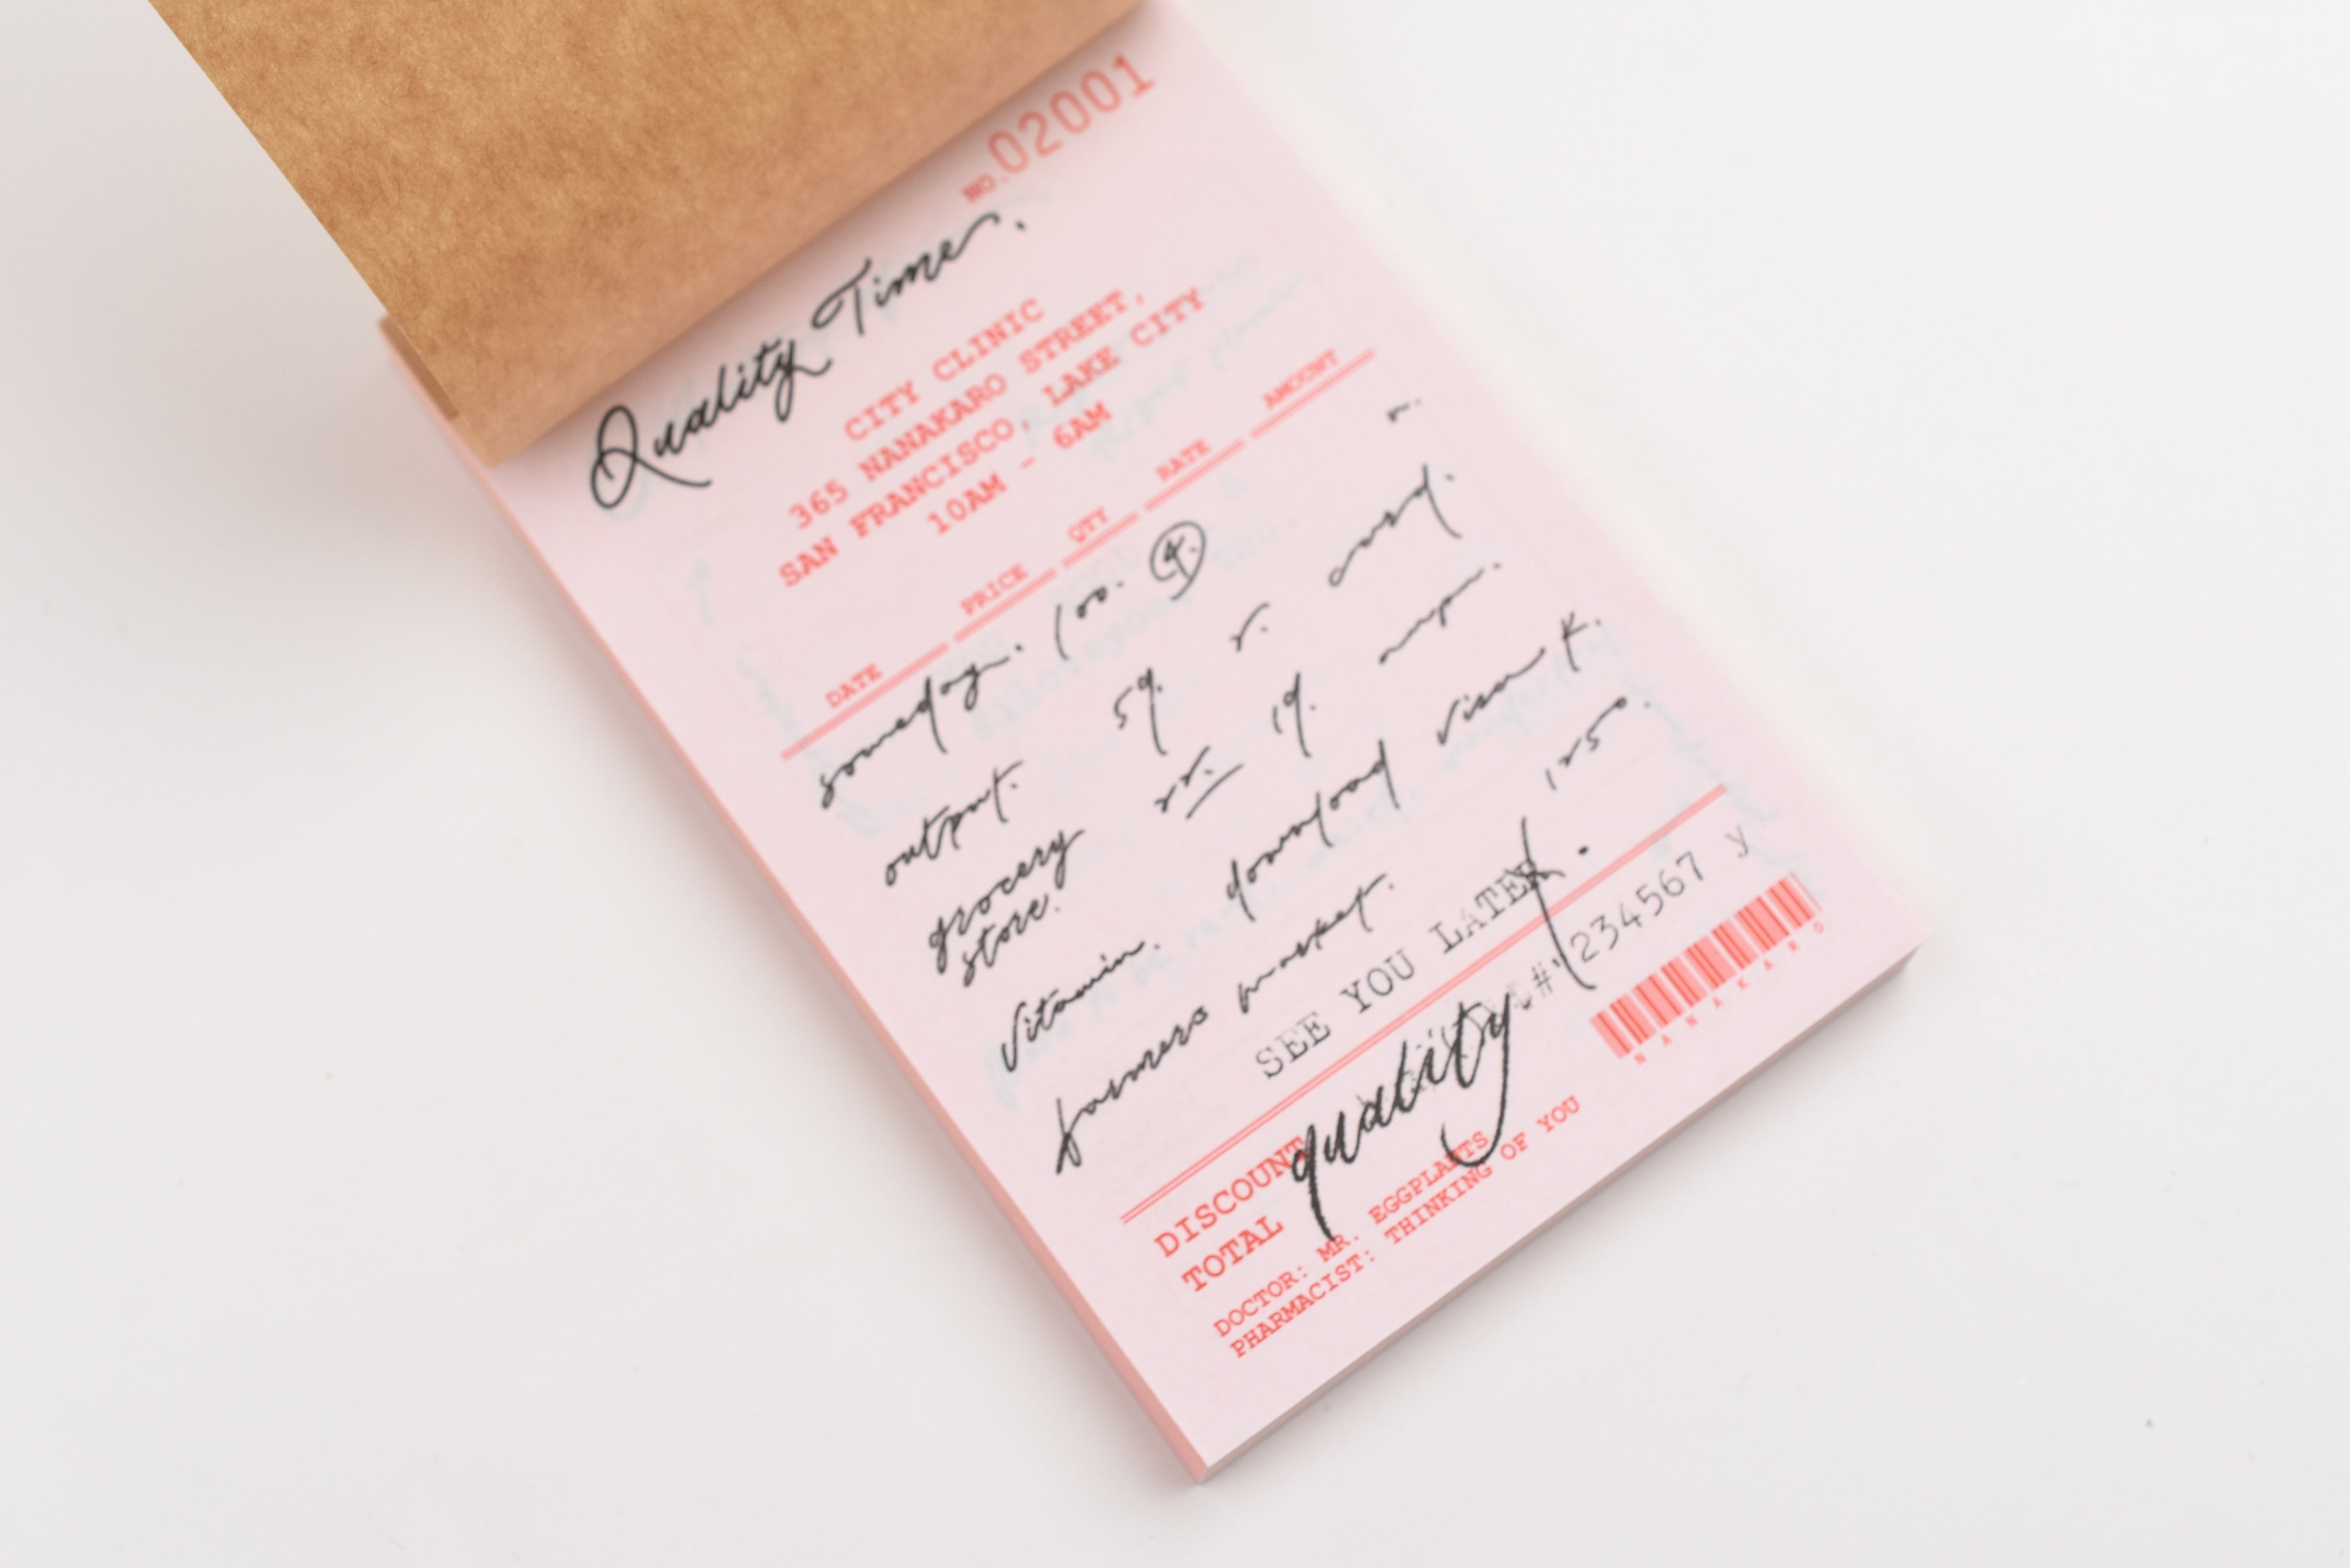 NO.02001
Quality Time.
CITY CLINIC
365 NANAKARO STREET,
SAN FRANCISCO, LAKE CITY
10AM - 6AM
DATE PRICE QTY RATE AMOUNT
someday. 100. 4. n.
output. 59. r. card.
grocery rr. 19. mp.
store.
Vitamin. downfood visa K.
farmers market. 1250.
SEE YOU LATER
#1234567 y
quality.
DISCOUNT
TOTAL
NANAKARO
DOCTOR: MR. EGGPLANTS
PHARMACIST: THINKING OF YOU